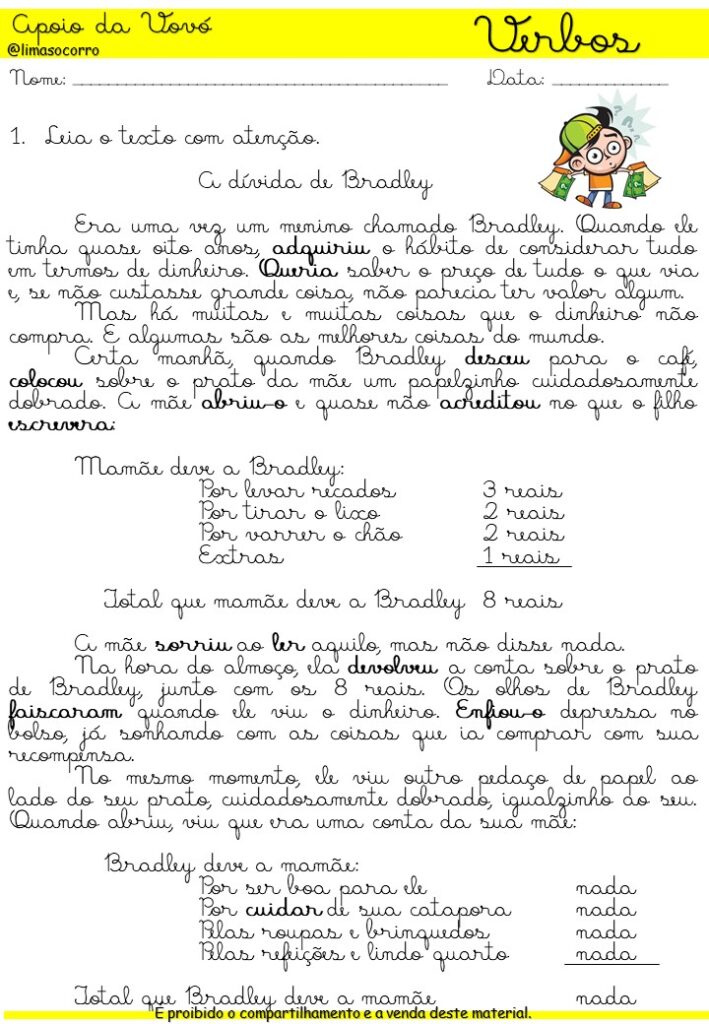 Apoio da Vovó
Verbos
@limasocorro
Nome: ________________________ Data: ____________
1. Leia o texto com atenção.
A dívida de Bradley
Era uma vez um menino chamado Bradley. Quando ele
tinha quase oito anos, adquiriu o hábito de considerar tudo
em termos de dinheiro. Queria saber o preço de tudo o que via
e, se não custasse grande coisa, não parecia ter valor algum.
Mas há muitas e muitas coisas que o dinheiro não
compra. E algumas são as melhores coisas do mundo.
Certa manhã, quando Bradley desceu para o café,
colocou sobre o prato da mãe um papelzinho cuidadosamente
dobrado. A mãe abriu-o e quase não acreditou no que o filho
escrevera:
Mamãe deve a Bradley:
Por levar recados 3 reais
Por tirar o lixo 2 reais
Por varrer o chão 2 reais
Extras 1 reais
Total que mamãe deve a Bradley 8 reais
A mãe sorriu ao ler aquilo, mas não disse nada.
Na hora do almoço, ela devolveu a conta sobre o prato
de Bradley, junto com os 8 reais. Os olhos de Bradley
faiscaram quando ele viu o dinheiro. Enfiou-o depressa no
bolso, já sonhando com as coisas que ia comprar com sua
recompensa.
No mesmo momento, ele viu outro pedaço de papel ao
lado do seu prato, cuidadosamente dobrado, igualzinho ao seu.
Quando abriu, viu que era uma conta da sua mãe:
Bradley deve a mamãe:
Por ser boa para ele nada
Por cuidar de sua catapora nada
Pelas roupas e brinquedos nada
Pelas refeições e lindo quarto nada
Total que Bradley deve a mamãe nada
*É proibido o compartilhamento e a venda deste material.